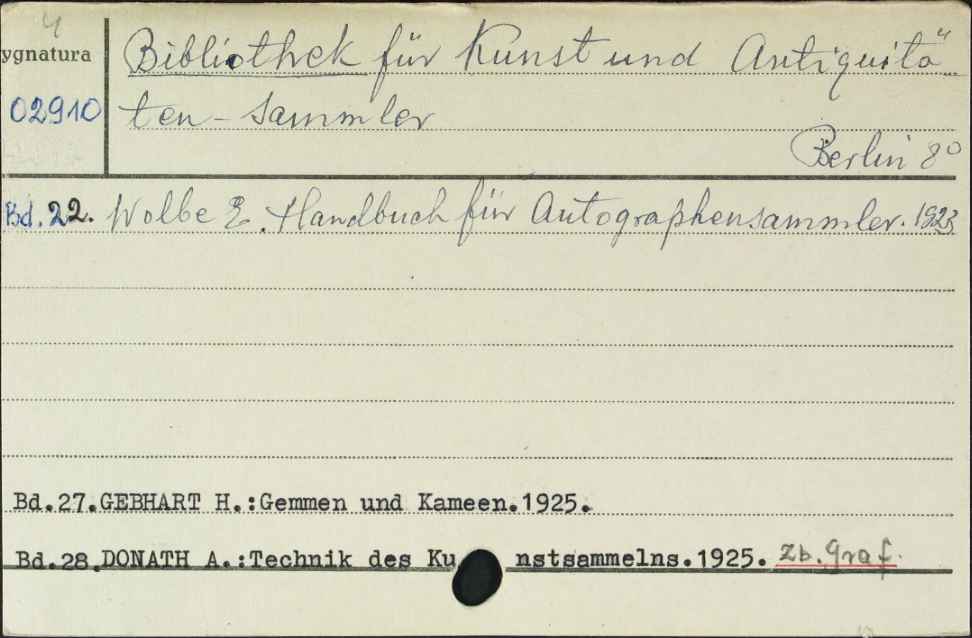 4
ygnatura
Bibliothek für Kunst und Antiquitä
02910
ten-Sammler
Berlin 8°
Bd. 22. Wolbe E. Handbuch für Autographensammler. 1923
Bd.27.GEBHART H.:Gemmen und Kameen.1925.
Bd.28.DONATH A.:Technik des Ku nstsammelns.1925. Zb. Graf.